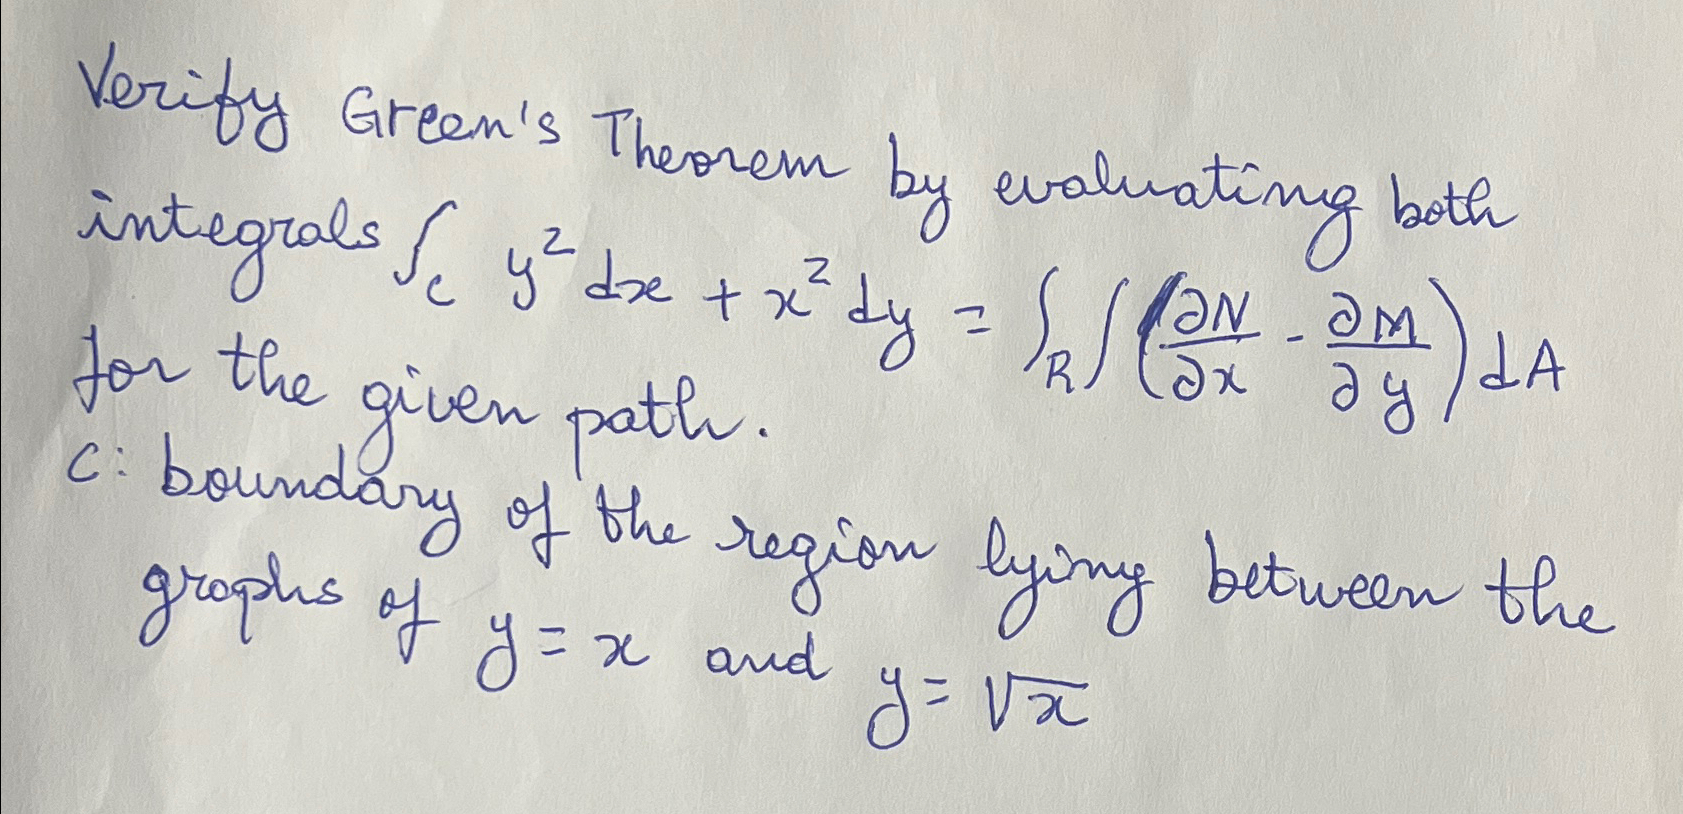 Verify Green's Theorem by evaluating both
integrals ∫_C y² dx + x² dy = ∫_R ∫ (∂N/∂x - ∂M/∂y) dA
for the given path.
C: boundary of the region lying between the
graphs of y = x and y = √x